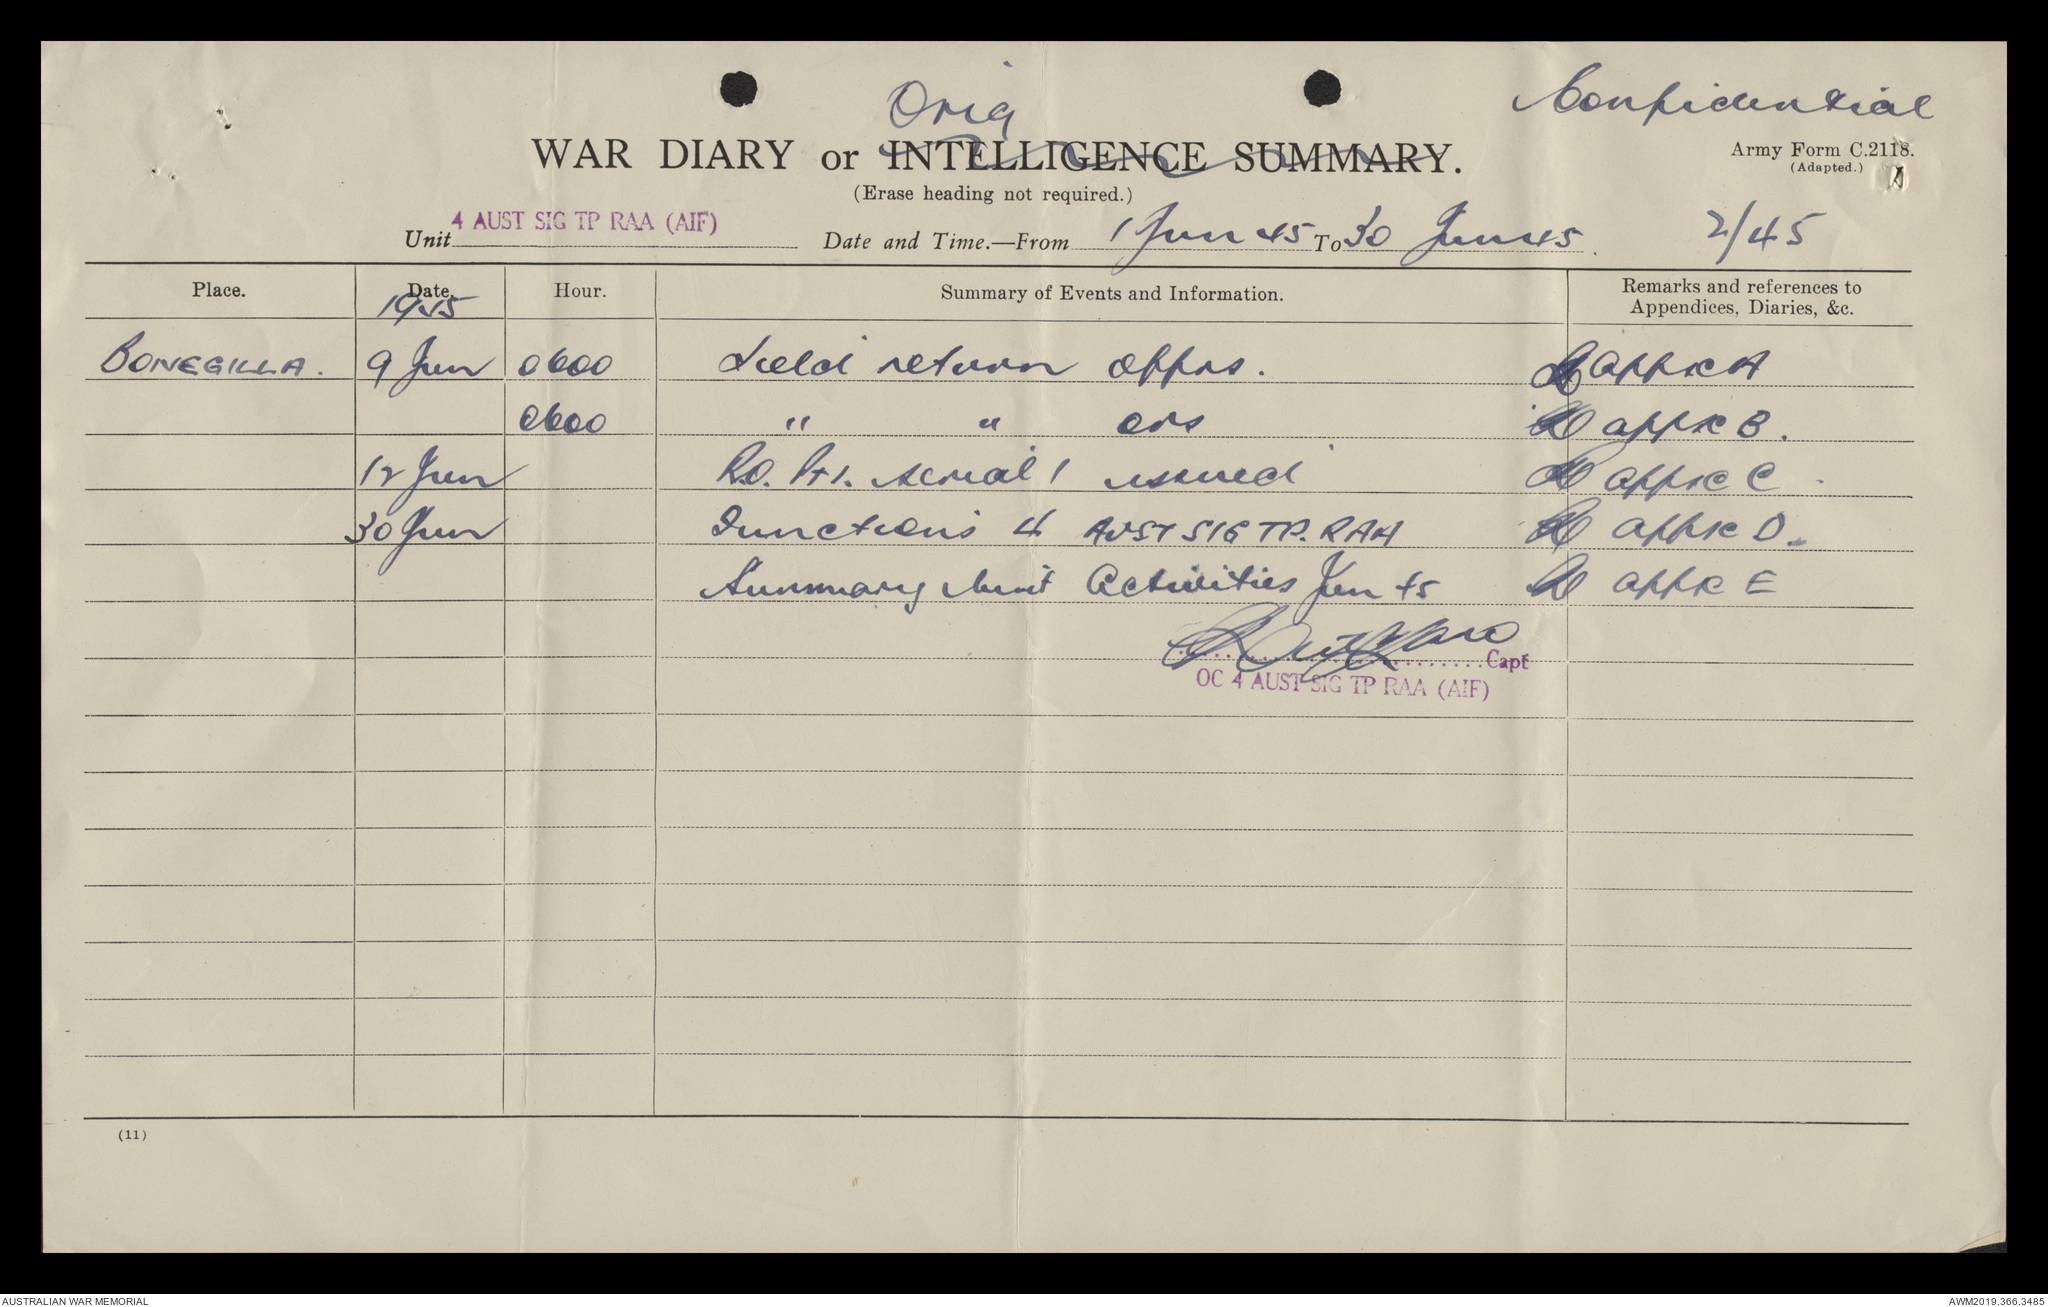 Orig
Confidential
WAR DIARY or INTELLIGENCE SUMMARY.
Army Form C.2118.
(Adapted.)
(Erase heading not required.)
Unit 4 AUST SIG TP RAA (AIF) Date and Time.—From 1 Jun 45 To 30 Jun 45. 2/45
Place. Date. Hour. Summary of Events and Information. Remarks and references to Appendices, Diaries, &c.
1945
BONEGILLA. 9 Jun 0600 Field return offrs. appx A
0600 " " ors appx B.
12 Jun R.O. Pt 1. serial 1 issued appx C
30 Jun Functions 4 AUST SIG TP. RAA appx D.
Summary Unit Activities Jun 45 appx E
Capt
OC 4 AUST SIG TP RAA (AIF)
(11)
AUSTRALIAN WAR MEMORIAL
AWM2019.366.3485